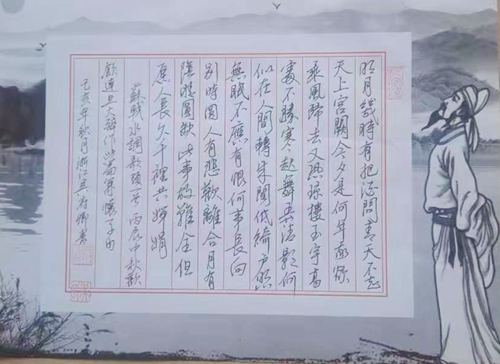 明月几時有把酒問青天不知
天上宮闕今夕是何年我欲
乘風歸去又恐瓊樓玉宇高
處不勝寒起舞弄清影何
似在人間轉朱閣低綺户照
無眠不應有恨何事長向
别時圓人有悲歡離合月有
陰晴圓缺此事古難全但
願人長久千里共嬋娟
蘇軾水調歌頭一首丙辰中秋歡
飲達旦大醉作此篇兼懷子由
己亥年秋月浙江